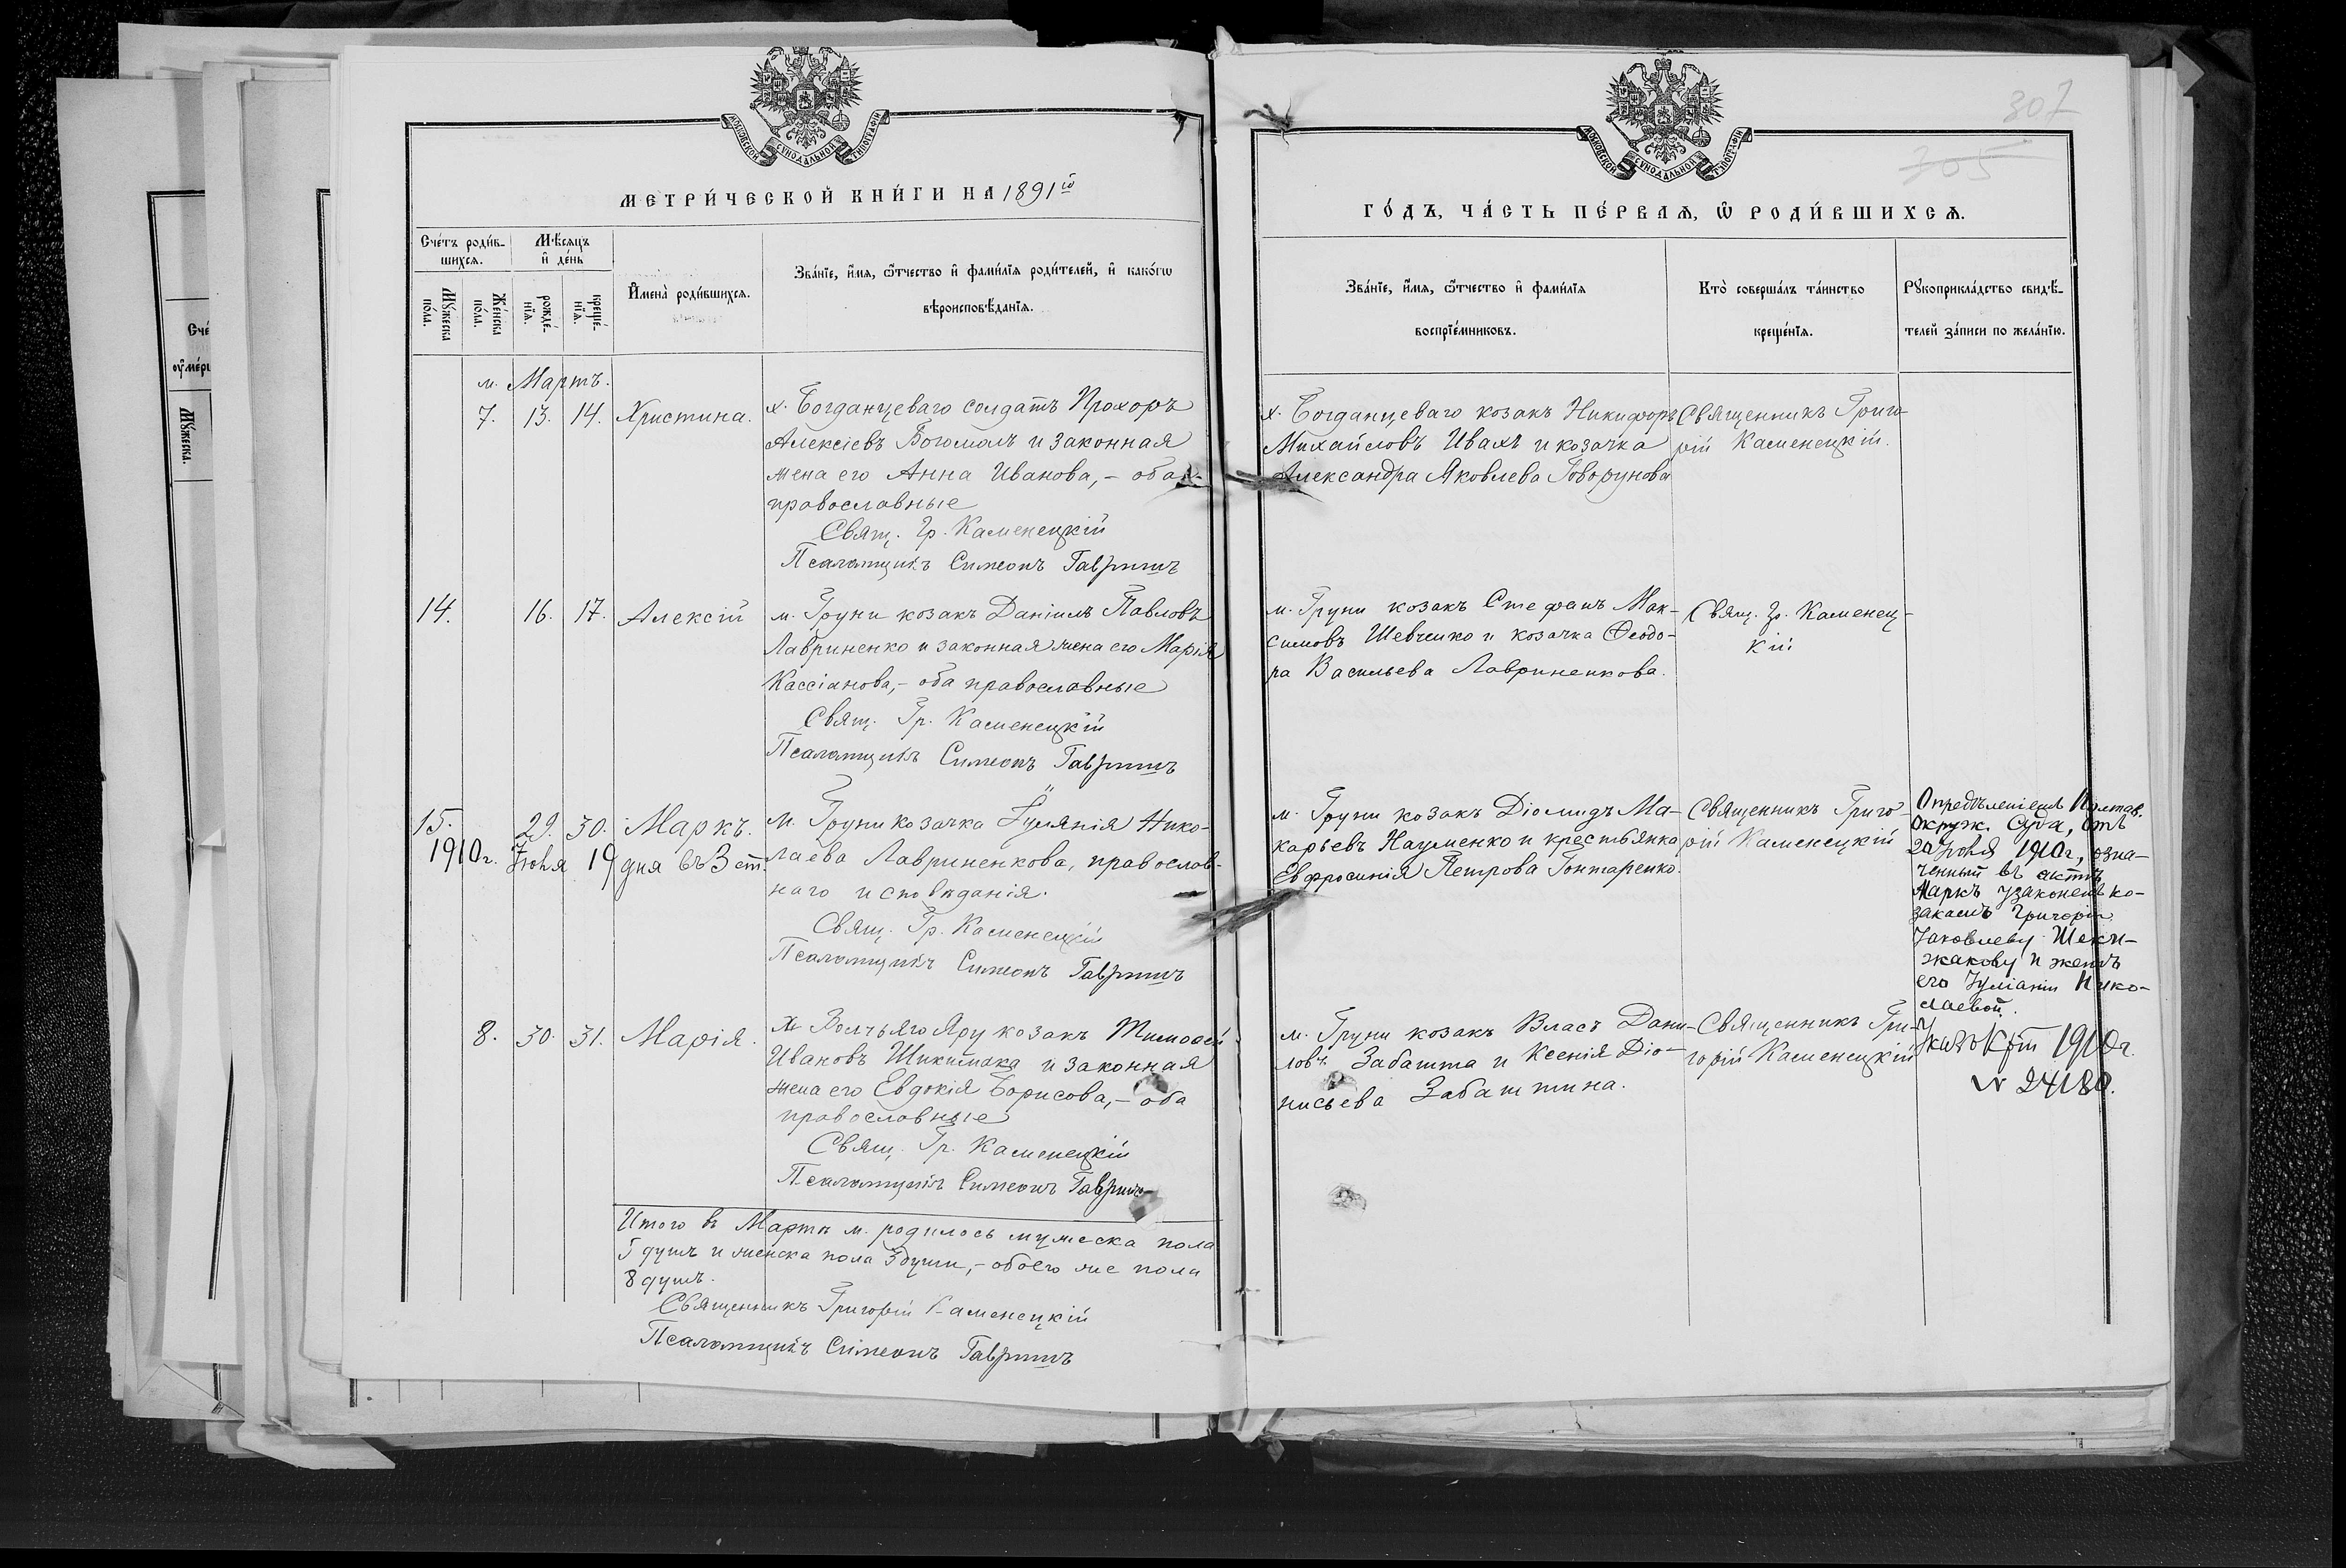 МОСКОВСКОЙ СѴНОДАЛЬНОЙ ТИПОГРАФІИ
МЕТРИ́ЧЕСКОЙ КНИ́ГИ НА 1891й
Сче́тъ роди́в-
шихсѧ.
Мꙋ́жеска
по́ла.
Же́нска
по́ла.
М́ѣсѧцъ
и҆ де́нь
рожде́-
нїѧ.
креще́-
нїѧ.
И҆мена̀ роди́вшихсѧ.
Зва́нїе, и҆́мѧ, ѻ҆́тчество и҆ фами́лїѧ роди́телей, и҆ како́гѡ
вѣроисповѣ́данїѧ.
м. Мартъ.
7. 13. 14. Христина.
х. Богданцеваго солдатъ Прохоръ
Алексіевъ Богомолъ и законная
жена его Анна Иванова, – оба
православные
Свящ. Гр. Каменецкій
Псаломщикъ Симеонъ Гавришъ
14. 16. 17. Алексій
м. Груни козакъ Даніилъ Павловъ
Лавриненко и законная жена его Марія
Кассіанова, – оба православные
Свящ. Гр. Каменецкій
Псаломщикъ Симеонъ Гавришъ
15. 29. 30. Маркъ.
1910г. Іюня 19 дня въ 3 ст.
м. Груни козачка Іуліянія Нико-
лаева Лавриненкова, православ-
наго исповѣданія.
Свящ. Гр. Каменецкій
Псаломщикъ Симеонъ Гавришъ
8. 30. 31. Марія.
х. Волчьяго Яру козакъ Тимоѳей
Ивановъ Шикитмака и законная
жена его Евдокія Борисова, – оба
православные
Свящ. Гр. Каменецкій
Псаломщикъ Симеонъ Гавришъ
Итого въ Мартѣ м. родилось мужеска пола
5 душъ и женска пола 3 души, – обоего же пола
8 душъ.
Священникъ Григорій Каменецкій
Псаломщикъ Симеонъ Гавришъ
МОСКОВСКОЙ СѴНОДАЛЬНОЙ ТИПОГРАФІИ
307
305
ГО́ДЪ, ЧА́СТЬ ПЕ́РВАѦ, Ѡ҆ РОДИ́ВШИХСѦ.
Зва́нїе, и҆́мѧ, ѻ҆́тчество и҆ фами́лїѧ
воспрїе́мниковъ.
Кто̀ соверша́лъ та́инство
креще́нїѧ.
Рꙋкоприкла́дство свидѣ́-
телей за́писи по жела́нїю.
х. Богданцеваго козакъ Никифоръ
Михайловъ Ивахъ и козачка
Александра Яковлева Говорунова
Священникъ Григо-
рій Каменецкій.
м. Груни козакъ Стефанъ Мак-
симовъ Шевченко и козачка Ѳеодо-
ра Васильева Лавриненкова.
Свящ. Гр. Каменец-
кій
м. Груни козакъ Діомидъ Ма-
карьевъ Науменко и крестьянка
Евфросинія Петрова Гонтаренко.
Священникъ Григо-
рій Каменецкій
Опредѣленіемъ Полтав.
Окруж. Суда, отъ
20 Іюня 1910г., озна-
ченный въ актѣ
Маркъ узаконенъ ко-
закамъ Григорію
Іаковлеву Шеки-
жакову и женѣ
его Іуліаніи Нико-
лаевой.
Указъ К. от 1910г.
№ 24180.
м. Груни козакъ Власъ Дани-
ловъ Забашта и Ксенія Діо-
нисьева Забаштина.
Священникъ Гри-
горій Каменецкій
Сче́
оумер
Мꙋ́жеска.